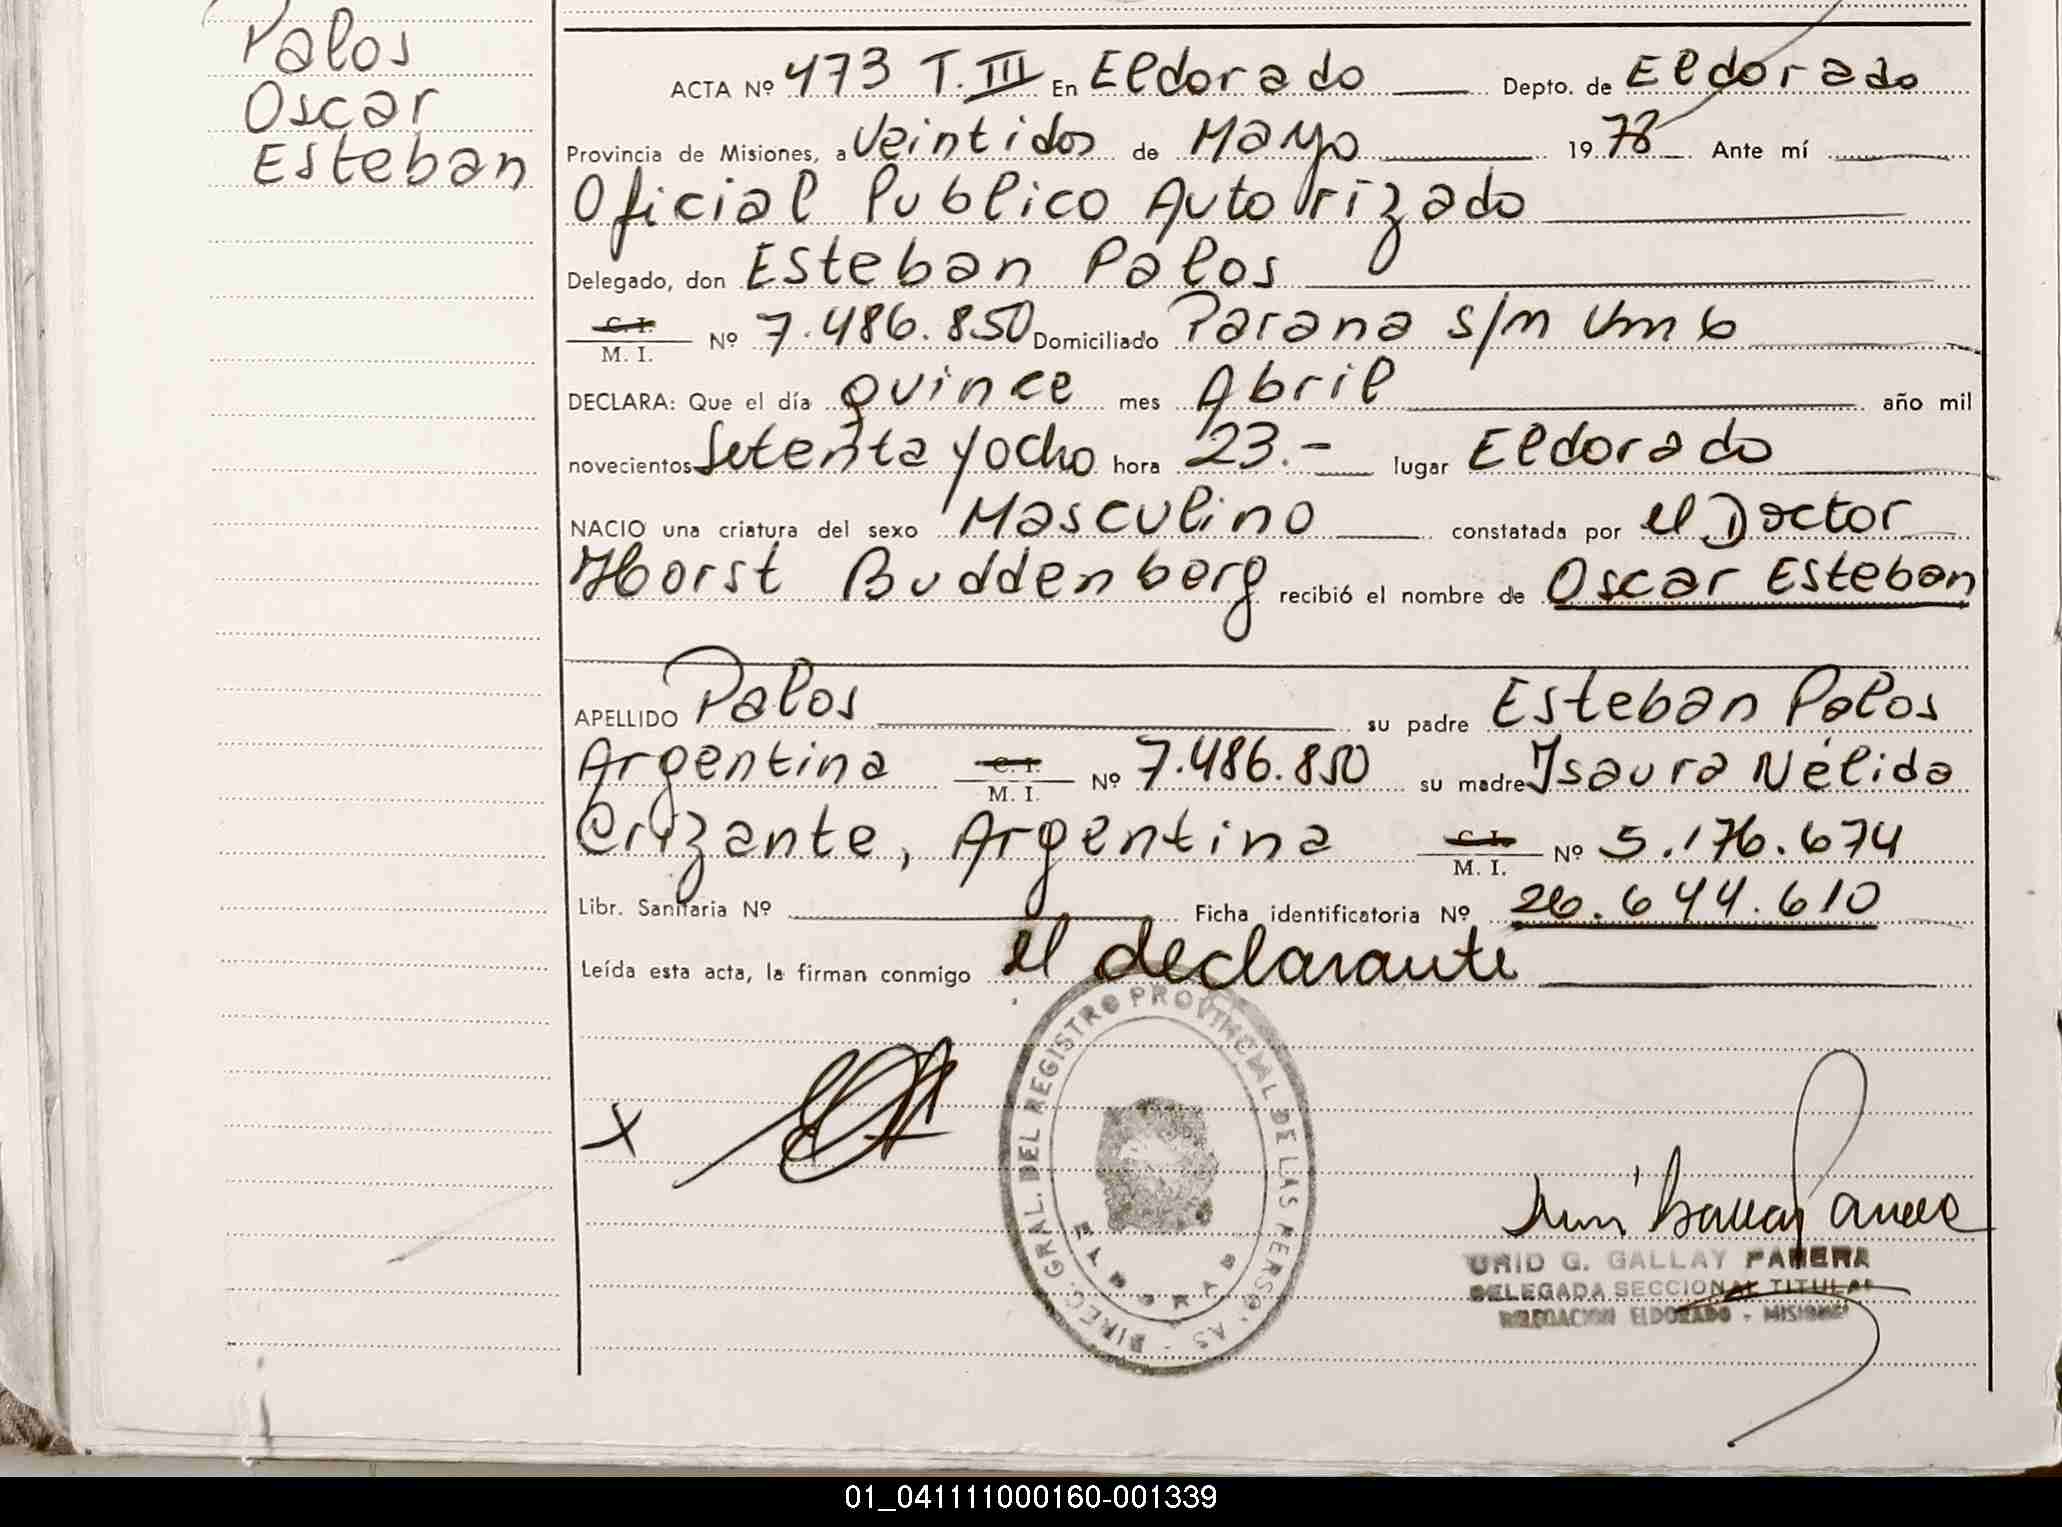 Palos
Oscar
Esteban
ACTA Nº 473 T. III En Eldorado Depto. de Eldorado
Provincia de Misiones, a Veintidos de Mayo 1978 Ante mí
Oficial Publico Autorizado
Delegado, don Esteban Palos
C. I. M. I. Nº 7.486.850 Domiciliado Parana s/n
DECLARA: Que el día quince mes Abril año mil
novecientos Setenta y ocho hora 23.- lugar Eldorado
NACIO una criatura del sexo Masculino constatada por el Doctor
Horst Buddenberg recibió el nombre de Oscar Esteban
APELLIDO Palos su padre Esteban Palos
Argentina C. I. M. I. Nº 7.486.850 su madre Isaura Nélida
Crizante, Argentina C. I. M. I. Nº 5.176.674
Libr. Sanitaria Nº Ficha identificatoria Nº 26.644.610
Leída esta acta, la firman conmigo el declarante
X
DIREC. GRAL. DEL REGISTRO PROVINCIAL DE LAS PERSONAS
G. GALLAY PANERA
DELEGADA SECCIONAL TITULAR
DELEGACION ELDORADO - MISIONES
01_041111000160-001339